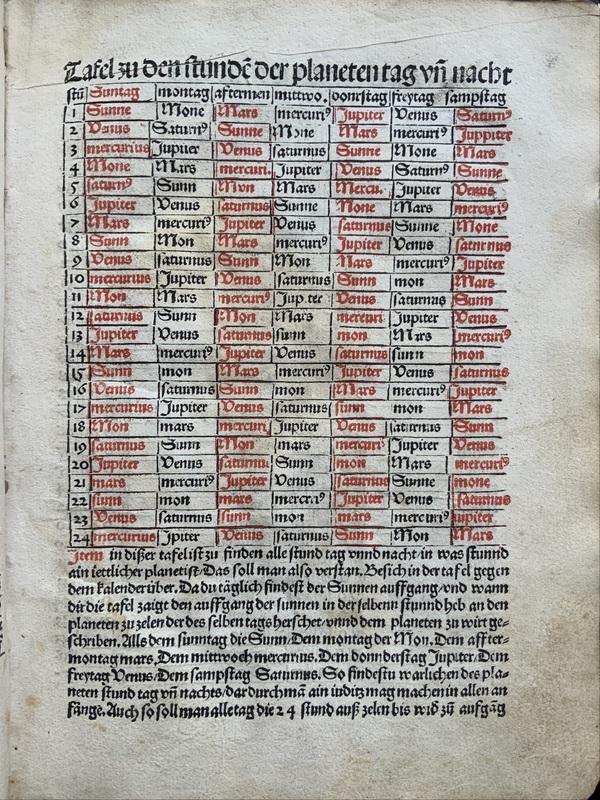 Tafel zu den stundē der planeten tag vn̄ nacht
stū Suntag montag afternen mitwo. donrstag freytag sampstag
1 Sunne Mone Mars mercuriꝰ Jupiter Venus Saturnꝰ
2 Venus Saturnꝰ Sunne Mone Mars mercuriꝰ Juppiter
3 mercurius Jupiter Venus saturnus Sunne Mone Mars
4 Mone Mars mercuri. Jupiter Venus Saturnꝰ Sunne
5 saturnꝰ Sunn Mon Mars Mercu. Jupiter Venus
6 Jupiter Venus saturnus Sunne Mone Mars mercuriꝰ
7 Mars mercuriꝰ Jupiter Venus saturnus Sunne Mone
8 Sunn Mon Mars mercuriꝰ Jupiter Venus saturnus
9 Venus saturnus Sunn Mon Mars mercuriꝰ Jupiter
10 mercurius Jupiter Venus saturnus Sunn mon Mars
11 Mon Mars mercuriꝰ Jupiter Venus saturnus Sunn
12 saturnus Sunn Mon Mars mercuri Jupiter Venus
13 Jupiter Venus saturnus sunn mon Mars mercuriꝰ
14 Mars mercuriꝰ Jupiter Venus saturnus sunn mon
15 Sunn mon Mars mercuriꝰ Jupiter Venus saturnus
16 Venus saturnus Sunn mon Mars mercuriꝰ Jupiter
17 mercurius Jupiter Venus saturnus sunn mon Mars
18 Mon mars mercuri Jupiter Venus saturnus Sunn
19 saturnus Sunn Mon mars mercuriꝰ Jupiter Venus
20 Jupiter Venus saturnu Sunn mon Mars mercuriꝰ
21 mars mercuriꝰ Jupiter Venus saturnus Sunne mone
22 sunn mon mars mercuriꝰ Jupiter Venus saturnus
23 Venus saturnus sunn mon mars mercuriꝰ jupiter
24 mercurius Jpiter Venus saturnus Sunn Mon Mars
Item in dißer tafel ist zu finden alle stund tag vnnd nacht/in was stunnd
ain iettlicher planet ist/Das soll man also verstan. Besich in der tafel gegen
dem kalender über. Da du täglich findest der Sunnen auffgang/vnd wann
dir die tafel zaigt den auffgang der sunnen in der selbenn stunnd heb an den
planeten zu zelen der des selben tags herschet/vnnd dem planeten zu wirt ge-
schriben. Alls dem sunntag die Sunn/Dem montag der Mon. Dem affter-
montag mars, Dem mittwoch mercurius. Dem donnderstag Jupiter/Dem
freytag Venus/Dem sampstag Saturnus. So findestu warlichen des pla-
neten stund tag vn̄ nachts/dardurch mā ain iuditz mag machen in allen an
fänge. Auch so soll man alle tag die 24 stund auß zelen bis wid̄ zū aufgāg